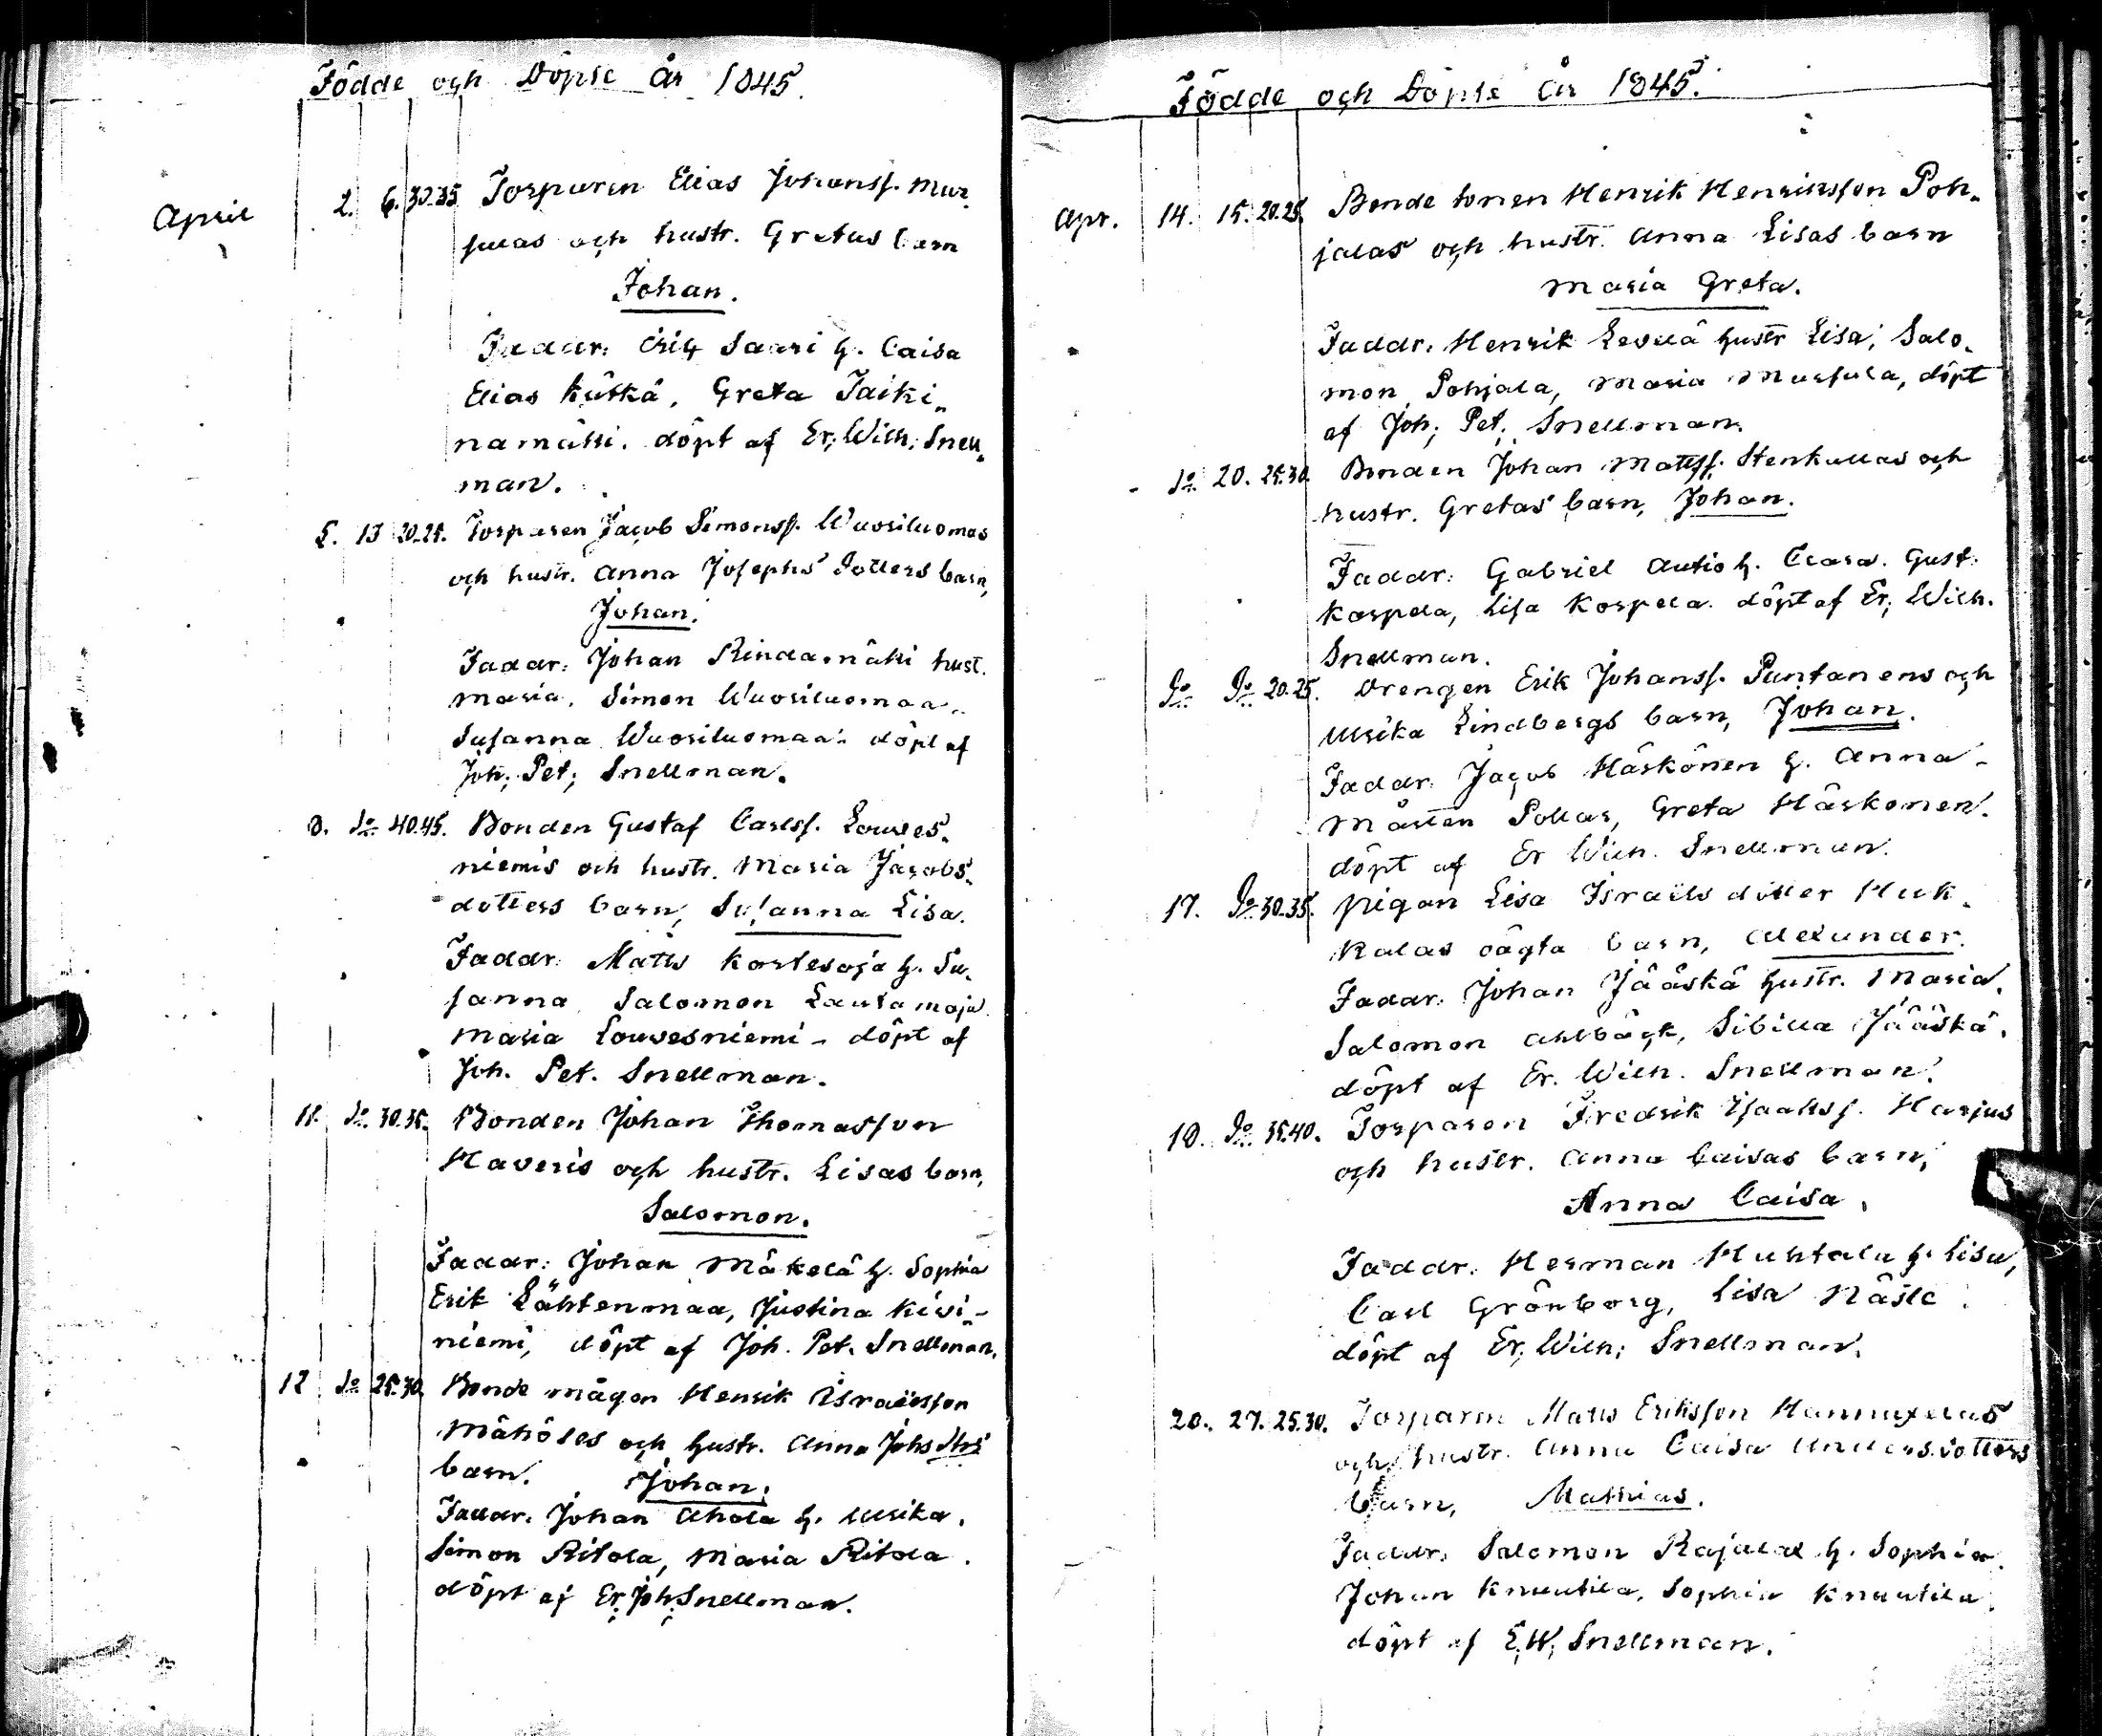 Födde och Döpte år 1845.
April 2. 6. 30.35 Torparen Elias Johanss. Mur
julas och hustr. Gretas barn
Johan.
Faddr: Erik Saari h. Caisa
Elias Kütkä, Greta Taiki
namäki. döpt af Er; Wilh; Snell
man.
5. 13 20.25. Torparen Jacob Simonss. Wuosiluomas
och hustr. Anna Josephs dotters barn,
Johan.
Faddr: Johan Rindamäki hust.
Maria. Simon Wuosiluomaa
Susanna Wuosiluomaa döpt af
Joh; Pet; Snellman.
8. do 40.45. Bonden Gustaf Carlss. Louves
niemis och hustr. Maria Jacobs
dotters barn, Susanna Lisa.
Faddr: Matts Kortesoja h. Su
sanna Salomon Lautamaja
Maria Louvesniemi - döpt af
Joh. Pet. Snellman.
11. do 30.35. Bonden Johan Thomasson
Haveris och hustr. Lisas barn,
Salomon.
Faddr: Johan Mäkelä h. Sophia
Erik Lähtenmaa, Justina Kivi-
niemi, döpt af Joh. Pet. Snellman.
12 do 25.30. Bonde mågen Henrik Israelsson
Mähöses och hustr. Anna Johs dtrs
barn. Johan.
Faddr: Johan Ahola h. Ulrika.
Simon Ritola, Maria Ritola.
döpt af Er; Joh; Snellman.
Födde och Döpte år 1845.
Apr. 14. 15. 20.25. Bonde sonen Henrik Henriksson Poh-
jalas och hustr. Anna Lisas barn
Maria Greta.
Faddr: Henrik Levelä hustr Lisa; Salo-
mon Pohjala, Maria Murjula, döpt
af Joh; Pet; Snellman.
do 20. 25.30. Bonden Johan Matss. Stenkullas och
hustr. Gretas barn, Johan.
Faddr: Gabriel Autio h. Clara. Gust.
Korpela, Lisa Korpela. döpt af Er; Wilh.
Snellman.
do do 20.25. Drengen Erik Johanss. Puntanens och
Ulrika Lindbergs barn, Johan.
Faddr: Jacob Häskönen h. Anna -
Mårten Pollar, Greta Härkonen.
döpt af Er Wilh. Snellman.
17. do 30.35. pigan Lisa Israels dotter Huk-
kalas oägta barn, Alexander.
Faddr: Johan Jääskä hustr. Maria.
Salomon Ahlbäck, Sibilla Jääskä.
döpt af Er. Wilh. Snellman.
18. do 35.40. Torparen Fredrik Isaakss. Harjus
och hustr. Anna Caisas barn,
Anna Caisa.
Faddr: Herman Huhtala h. Lisa,
Carl Grönborg, Lisa Näsle.
döpt af Er; Wilh; Snellman.
20. 27. 25.30. Torparen Matts Eriksson Hannuxelas
och hustr. Anna Caisa Anders dotters
barn, Mathias.
Faddr: Salomon Rajalal h. Sophia.
Johan Knuutila, Sophia Knuutila.
döpt af E; W; Snellman.